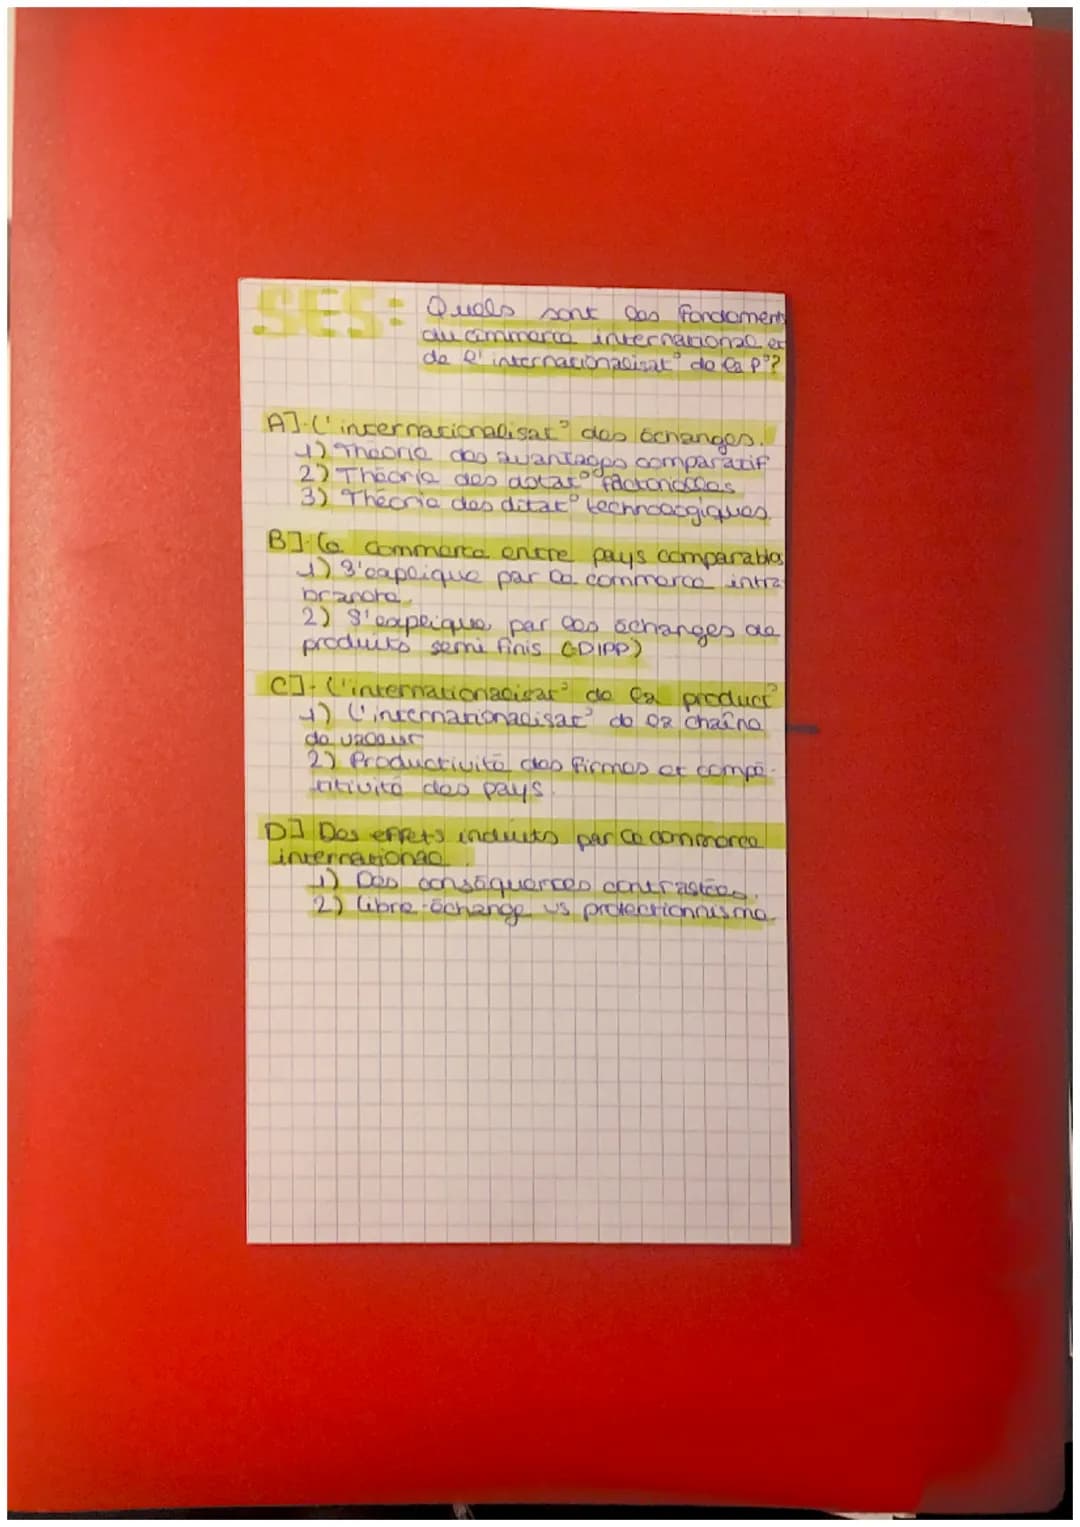 SES: Quels sont les fondements
du commerce international et
de l'internationalisat° de la p°?
A]-L'internationalisat° des échanges.
1) Théorie des avantages comparatif
2) Théorie des dotat° factorielles
3) Théorie des dotat° technologiques.
B]-Le commerce entre pays comparables
1) S'explique par le commerce intra-
branche.
2) S'explique par les échanges de
produits semi finis (DIPP)
C]-L'internationalisat° de la product°
1) L'internationalisat° de la chaîne
de valeur
2) Productivité des firmes et compé-
titivité des pays.
D] Des effets induits par le commerce
international.
1) Des conséquences contrastées.
2) Libre-échange vs protectionnisme